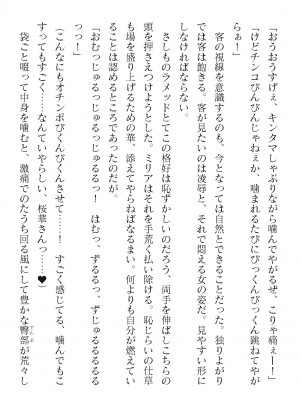 「おうおうすげぇ、キンタマしゃぶりながら噛んでやがるぜ、こりゃ痛ぇー！」
「けどチンコびんびんじゃねぇか、噛まれるたびにびっくんびっくん跳ねてやが
らぁ！」
客の視線を意識するのも、今となっては自然とできることだった。独りよがり
では客は飽きる。客が見たいのは凌辱と、それで悶える女の姿だ。見やすい形に
しなければならない。
さしものラメッドとてこの格好は恥ずかしいのだろう、両手を伸ばしこちらの
頭を押さえつけようとした。ミリアはそれを手荒く払い除ける。恥じらいの仕草
も場を盛り上げるための華、添えてやらねばなるまい。何よりも自分が燃えてい
ることは認めるところであったのだが。
「おむっじゅるるっっじゅるるるっ！　はむっ、ずるるっ、ずじゅるるるるっ
っっ！」
（こんなにもオチンポびくんびくんさせて……！　すごく感じてる、噛んでもこ
すってもすごく……なんていやらしい、桜華さんっ……♥
袋ごと啜って中身を噛むと、激痛でのたうち回る風にして豊かな臀部が荒々し
でんぶ